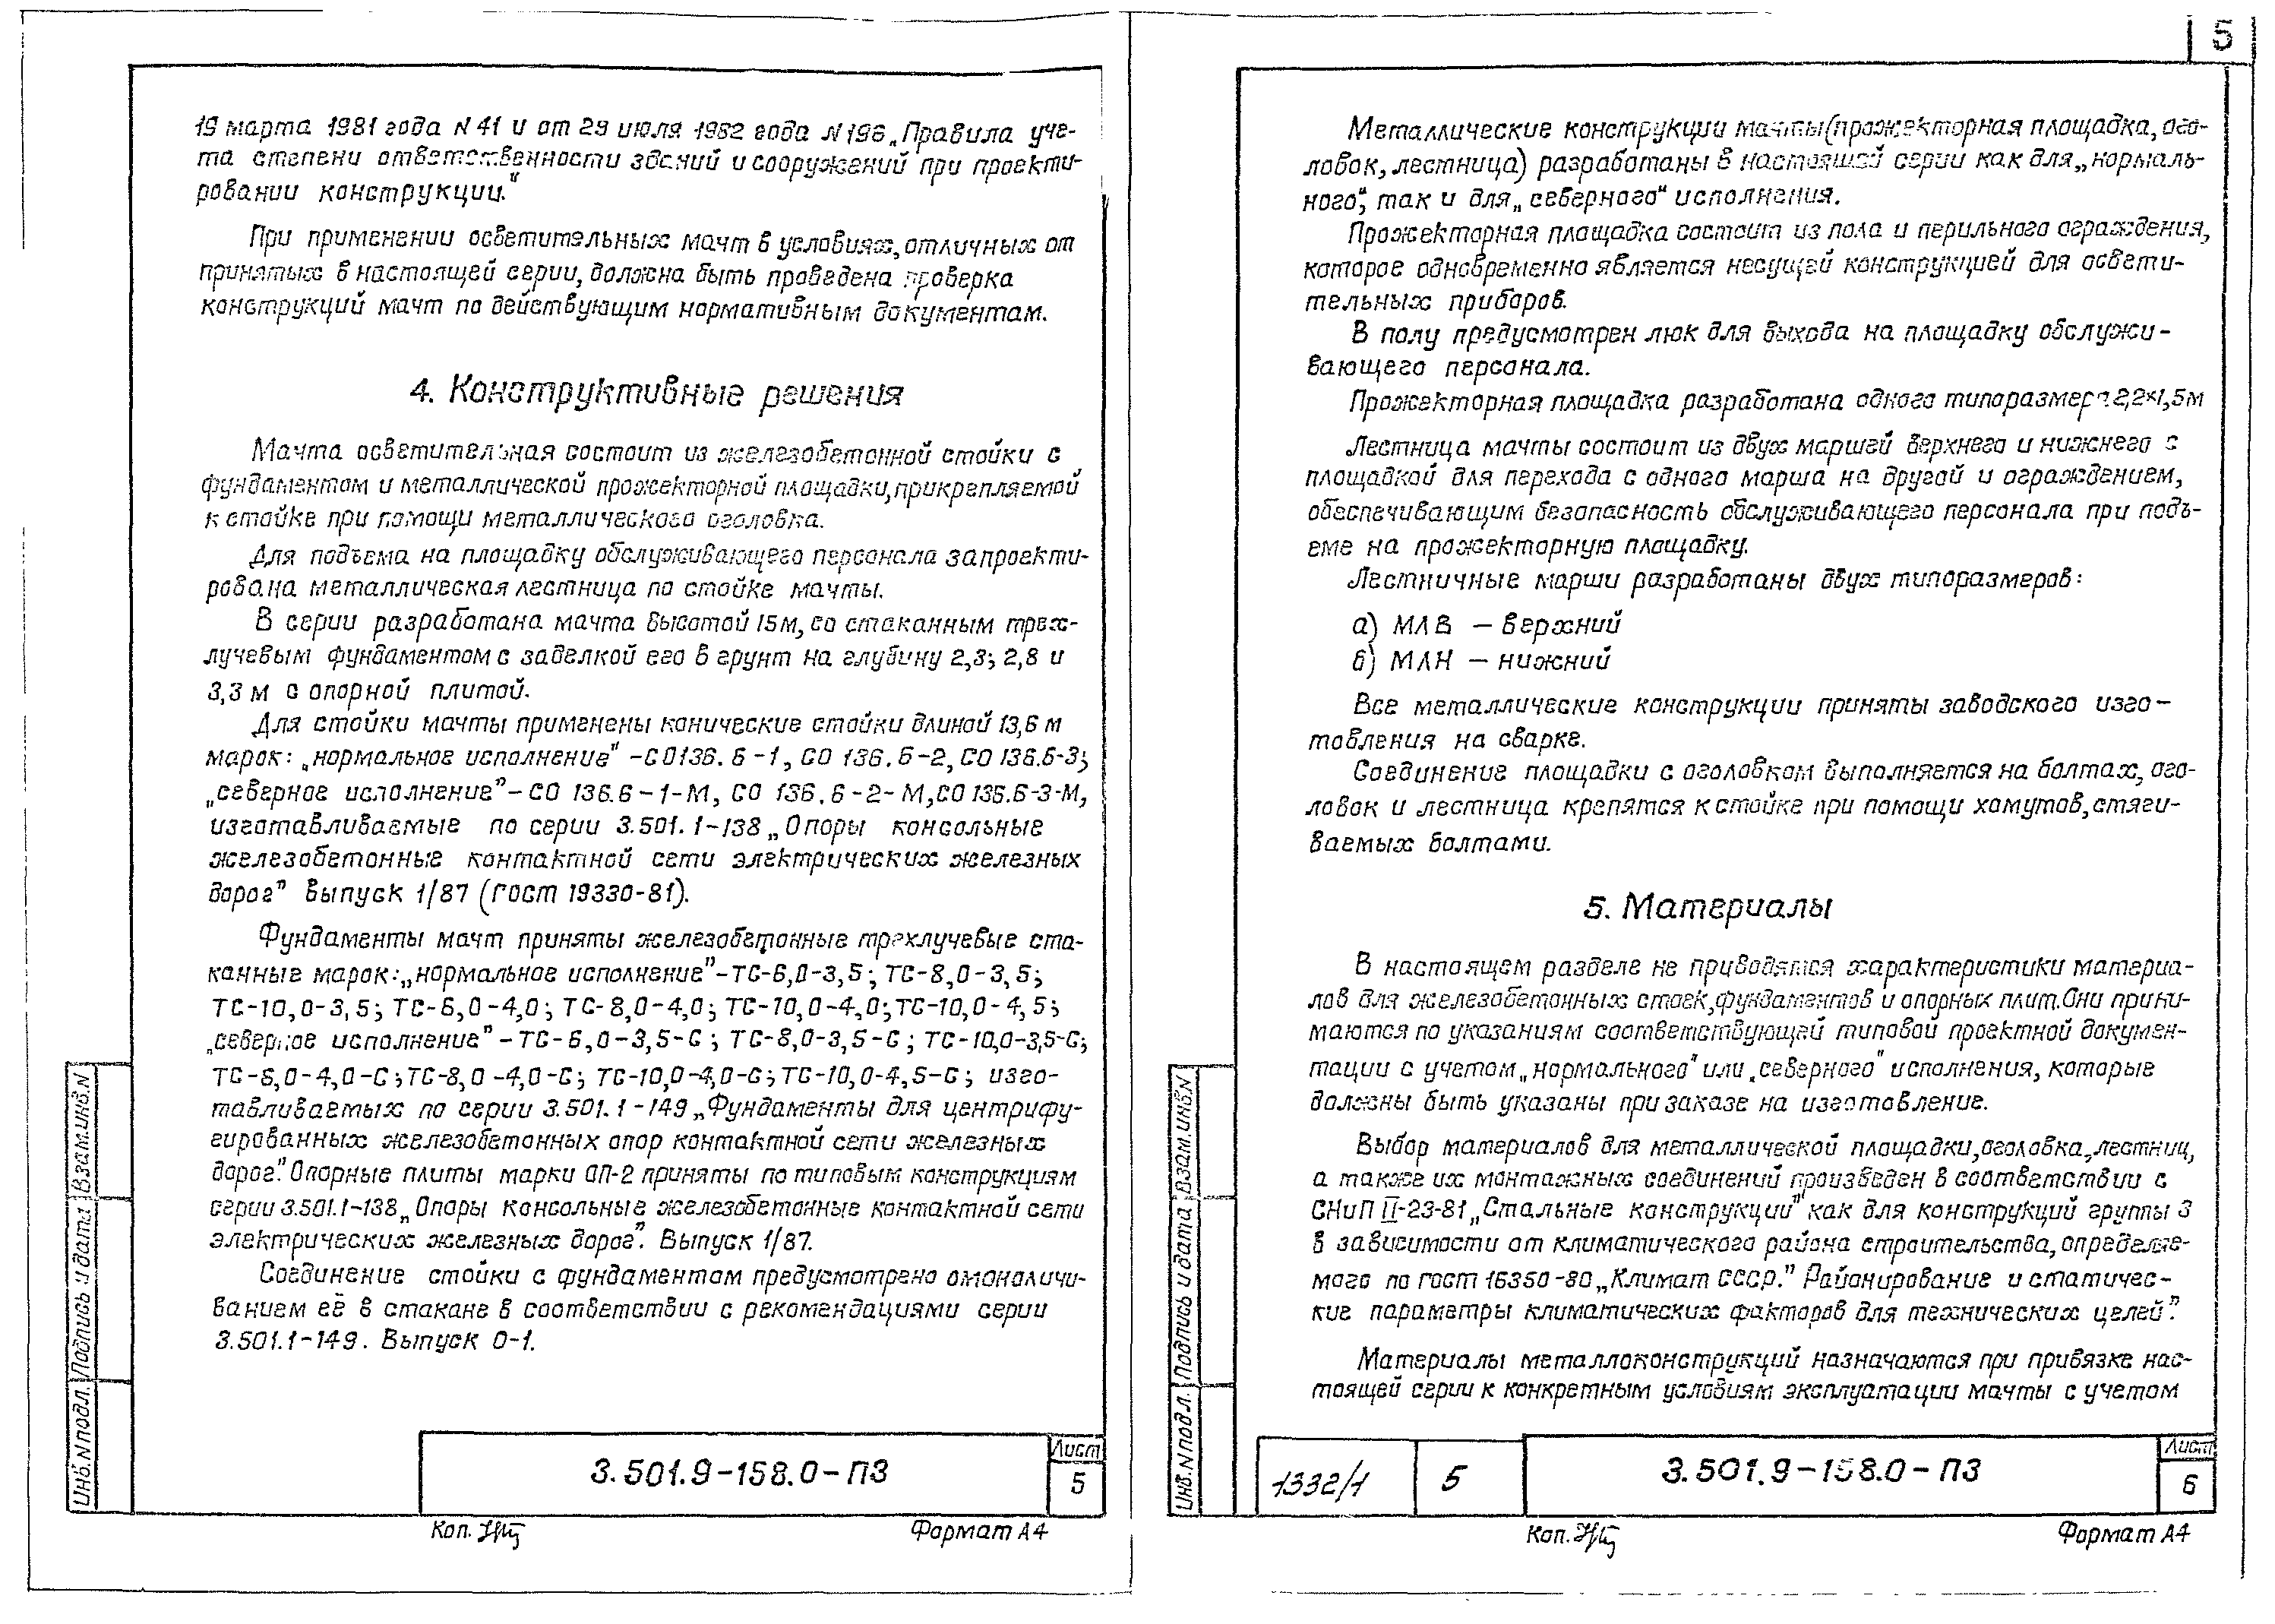 5
19 марта 1981 года N 41 и от 29 июля 1982 года N 196 „Правила уче-
та степени ответственности зданий и сооружений при проекти-
ровании конструкции."
При применении осветительных мачт в условиях, отличных от
принятых в настоящей серии, должна быть проведена проверка
конструкций мачт по действующим нормативным документам.
4. Конструктивные решения
Мачта осветительная состоит из железобетонной стойки с
фундаментом и металлической прожекторной площадки, прикрепляемой
к стойке при помощи металлического оголовка.
Для подъема на площадку обслуживающего персонала запроекти-
рована металлическая лестница по стойке мачты.
В серии разработана мачта высотой 15м, со стаканным трех-
лучевым фундаментом с заделкой его в грунт на глубину 2,3; 2,8 и
3,3 м с опорной плитой.
Для стойки мачты применены конические стойки длиной 13,6 м
марок: „нормальное исполнение" - СО136.6-1, СО 136.6-2, СО 136.6-3;
„северное исполнение" - СО 136.6-1-М, СО 136.6-2-М, СО 136.6-3-М,
изготавливаемые по серии 3.501.1-138 „Опоры консольные
железобетонные контактной сети электрических железных
дорог" Выпуск 1/87 (ГОСТ 19330-81).
Фундаменты мачт приняты железобетонные трехлучевые ста-
канные марок: „нормальное исполнение" - ТС-6,0-3,5; ТС-8,0-3,5;
ТС-10,0-3,5; ТС-6,0-4,0; ТС-8,0-4,0; ТС-10,0-4,0; ТС-10,0-4,5;
„северное исполнение" - ТС-6,0-3,5-С; ТС-8,0-3,5-С; ТС-10,0-3,5-С;
ТС-6,0-4,0-С; ТС-8,0-4,0-С; ТС-10,0-4,0-С; ТС-10,0-4,5-С; изго-
тавливаемых по серии 3.501.1-149 „Фундаменты для центрифу-
гированных железобетонных опор контактной сети железных
дорог". Опорные плиты марки ОП-2 приняты по типовым конструкциям
серии 3.501.1-138 „Опоры консольные железобетонные контактной сети
электрических железных дорог". Выпуск 1/87.
Соединение стойки с фундаментом предусмотрено омоноличи-
ванием её в стакане в соответствии с рекомендациями серии
3.501.1-149. Выпуск 0-1.
Инв. N подл. Подпись и дата Взам. инв. N
3.501.9-158.0-ПЗ
Лист
5
Коп.
Формат А4
Металлические конструкции мачты (прожекторная площадка, ого-
ловок, лестница) разработаны в настоящей серии как для „нормаль-
ного", так и для „северного" исполнения.
Прожекторная площадка состоит из пола и перильного ограждения,
которое одновременно является несущей конструкцией для освети-
тельных приборов.
В полу предусмотрен люк для выхода на площадку обслужи-
вающего персонала.
Прожекторная площадка разработана одного типоразмера 2,2×1,5м
Лестница мачты состоит из двух маршей верхнего и нижнего с
площадкой для перехода с одного марша на другой и ограждением,
обеспечивающим безопасность обслуживающего персонала при подъ-
еме на прожекторную площадку.
Лестничные марши разработаны двух типоразмеров:
а) МЛВ - верхний
б) МЛН - нижний
Все металлические конструкции приняты заводского изго-
товления на сварке.
Соединение площадки с оголовком выполняется на болтах, ого-
ловок и лестница крепятся к стойке при помощи хомутов, стяги-
ваемых болтами.
5. Материалы
В настоящем разделе не приводятся характеристики материа-
лов для железобетонных стоек, фундаментов и опорных плит. Они прини-
маются по указаниям соответствующей типовой проектной докумен-
тации с учетом „нормального" или „северного" исполнения, которые
должны быть указаны при заказе на изготовление.
Выбор материалов для металлической площадки, оголовка, лестниц,
а также их монтажных соединений произведен в соответствии с
СНиП II-23-81 „Стальные конструкции" как для конструкций группы 3
в зависимости от климатического района строительства, определяе-
мого по ГОСТ 16350-80 „Климат СССР." Районирование и статичес-
кие параметры климатических факторов для технических целей".
Материалы металлоконструкций назначаются при привязке нас-
тоящей серии к конкретным условиям эксплуатации мачты с учетом
Инв. N подл. Подпись и дата Взам. инв. N
1332/1
5
3.501.9-158.0-ПЗ
Лист
6
Коп.
Формат А4